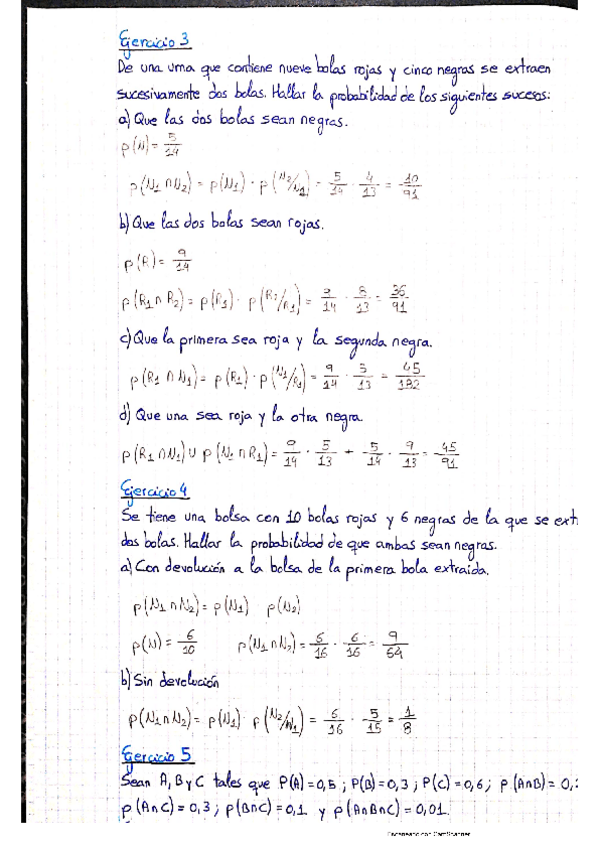 Ejercicio 3
De una urna que contiene nueve bolas rojas y cinco negras se extraen
sucesivamente dos bolas. Hallar la probabilidad de los siguientes sucesos:
a) Que las dos bolas sean negras.
p(N) = 5/14
p(N1 ∩ N2) = p(N1) · p(N2/N1) = 5/14 · 4/13 = 10/91
b) Que las dos bolas sean rojas.
p(R) = 9/14
p(R1 ∩ R2) = p(R1) · p(R2/R1) = 9/14 · 8/13 = 36/91
c) Que la primera sea roja y la segunda negra.
p(R1 ∩ N1) = p(R1) · p(N1/R1) = 9/14 · 5/13 = 45/182
d) Que una sea roja y la otra negra
p(R1 ∩ N1) ∪ p(N1 ∩ R1) = 9/14 · 5/13 + 5/14 · 9/13 = 45/91
Ejercicio 4
Se tiene una bolsa con 10 bolas rojas y 6 negras de la que se ext
dos bolas. Hallar la probabilidad de que ambas sean negras.
a) Con devolución a la bolsa de la primera bola extraída.
p(N1 ∩ N2) = p(N1) p(N2)
p(N) = 6/10 p(N1 ∩ N2) = 6/16 · 6/16 = 9/64
b) Sin devolución
p(N1 ∩ N2) = p(N1) · p(N2/N1) = 6/16 · 5/15 = 1/8
Ejercicio 5
Sean A, B y C tales que P(A) = 0,5 ; P(B) = 0,3 ; P(C) = 0,6 ; p(A∩B) = 0,
p(A∩C) = 0,3 ; p(B∩C) = 0,1 y p(A∩B∩C) = 0,01.
Escaneado con CamScanner